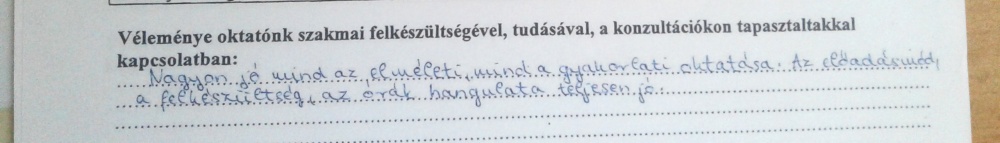 Véleménye oktatónk szakmai felkészültségével, tudásával, a konzultációkon tapasztaltakkal
kapcsolatban:
Nagyon jó mind az elméleti, mind a gyakorlati oktatása. Az előadásmód,
a felkészültség, az órák hangulata teljesen jó.